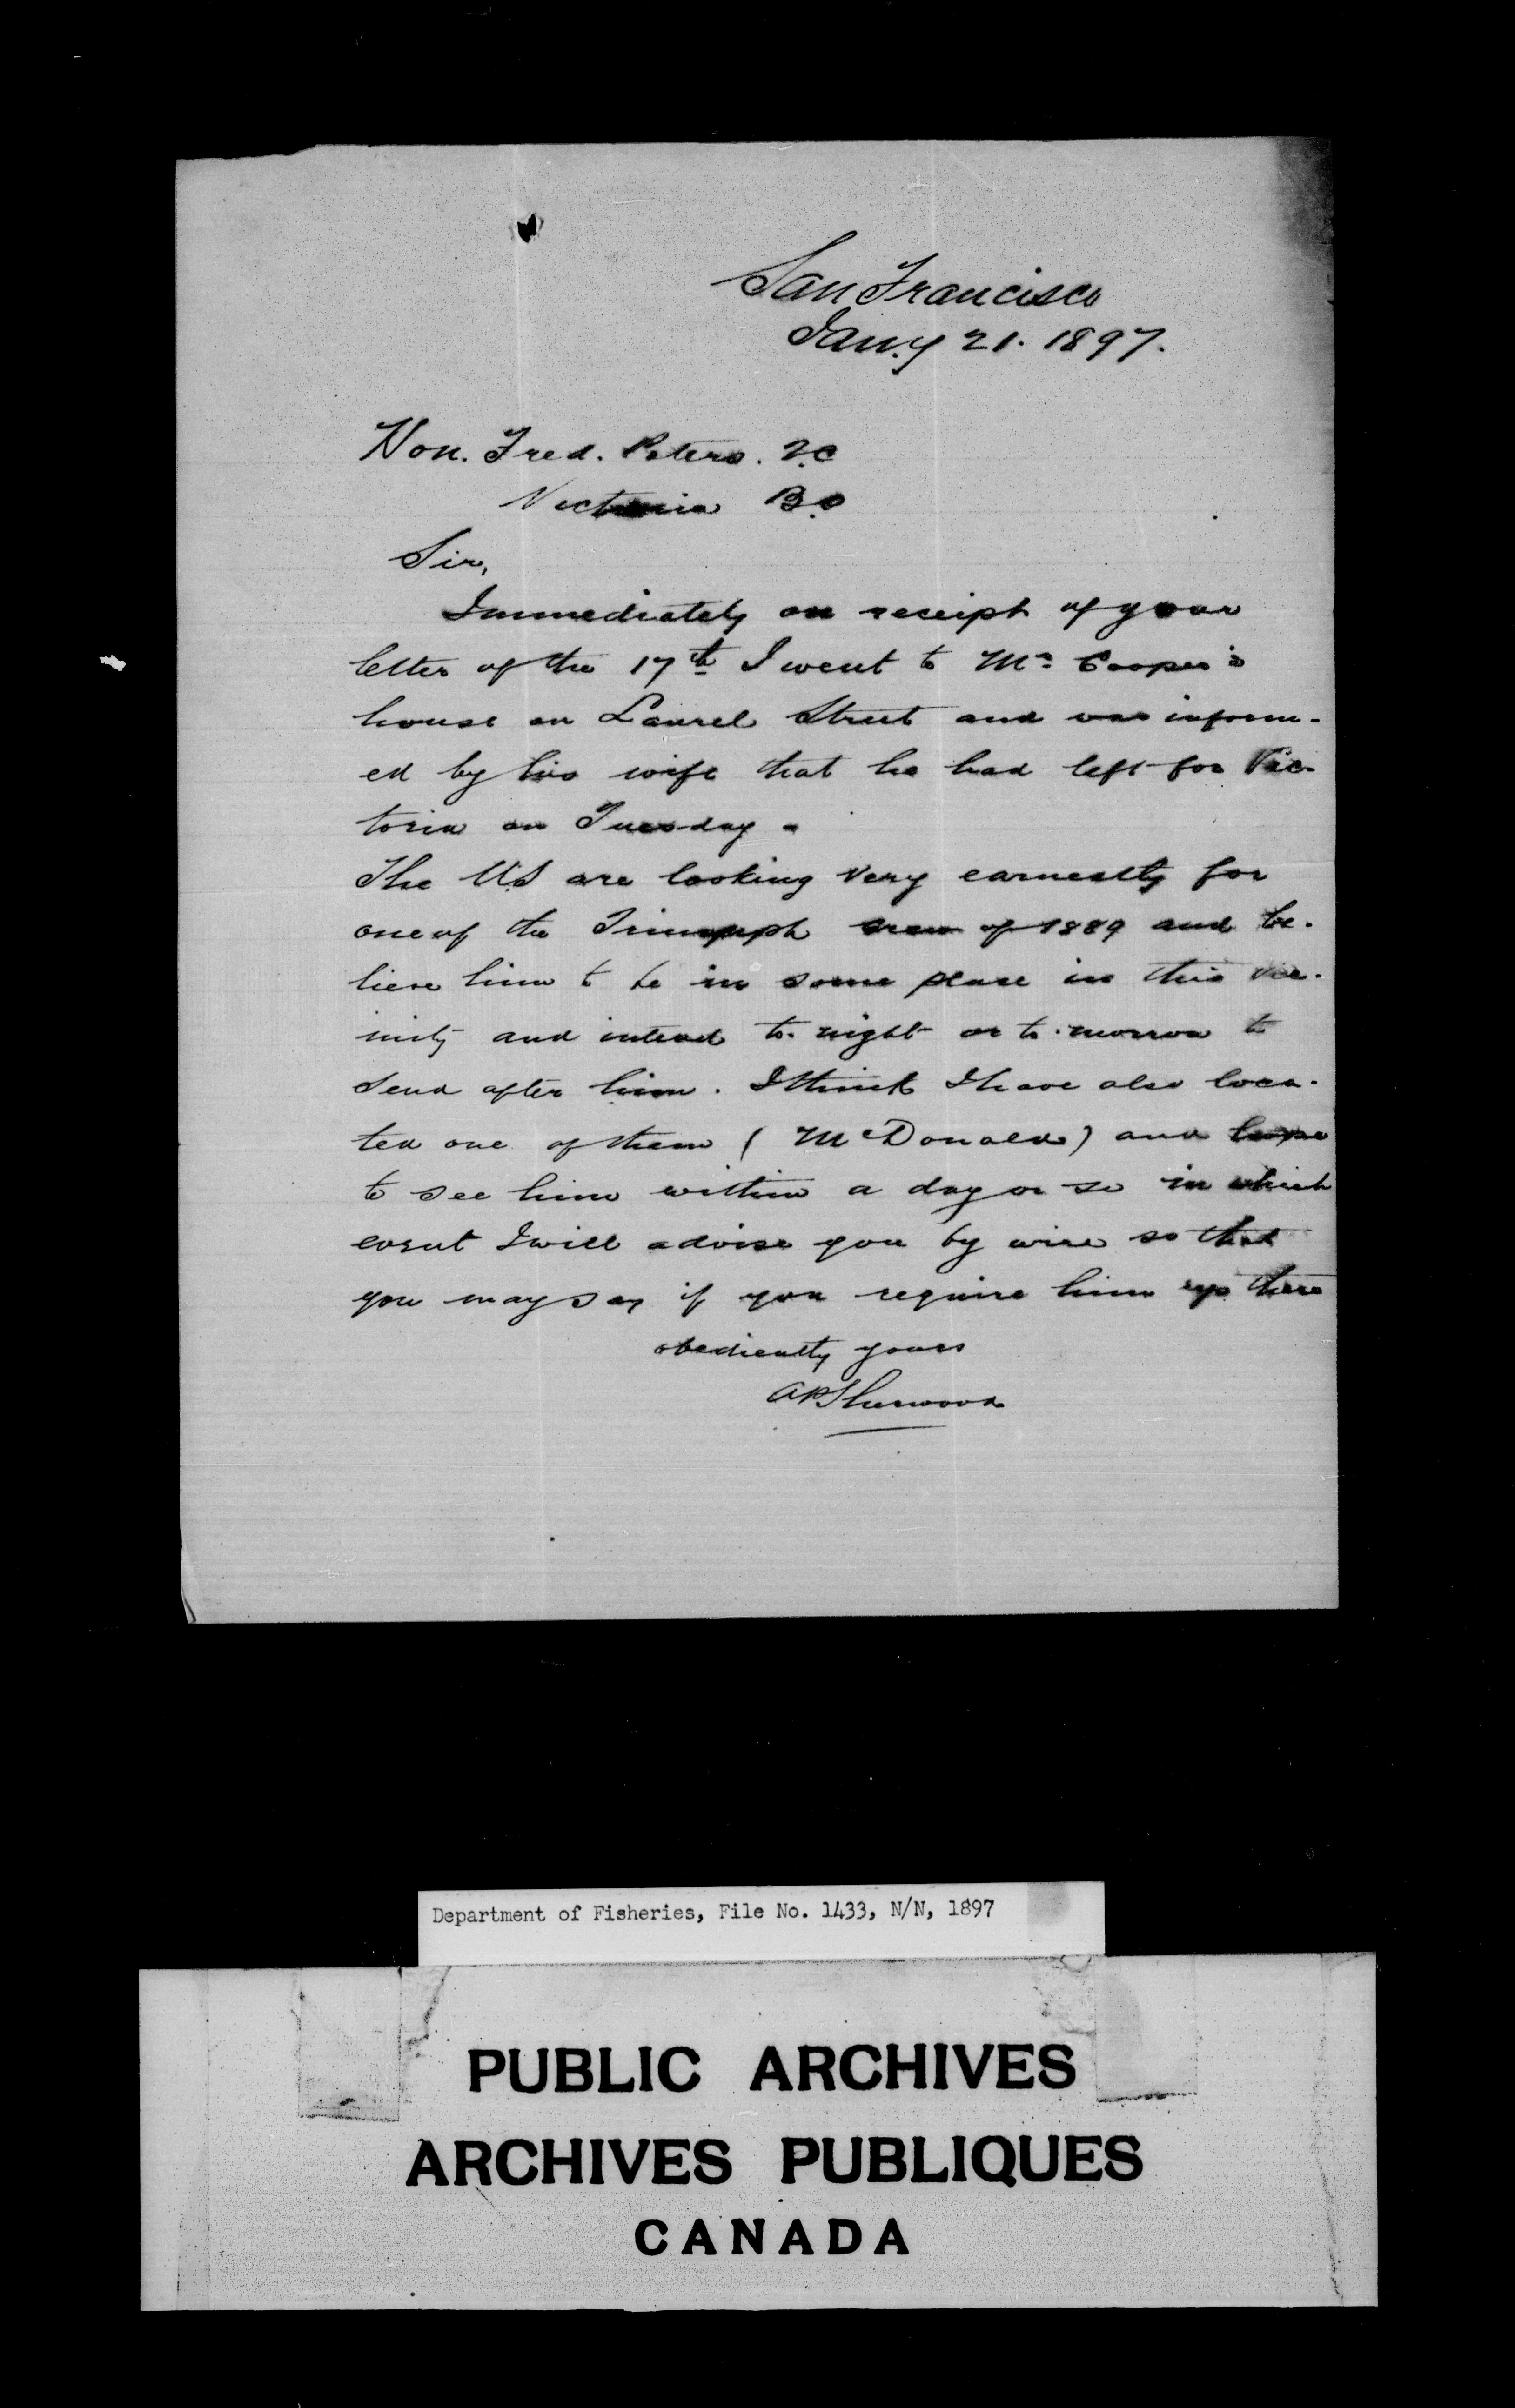 San Francisco
Jany 21. 1897.
Hon. Fred. Peters. Q.C
Victoria B.C
Sir,
Immediately on receipt of your
letter of the 17th I went to Mr. Cooper's
house on Laurel Street and was inform-
ed by his wife that he had left for Vic-
toria on Tuesday -
The U.S are looking very earnestly for
one of the Triumph crew of 1889 and be-
lieve him to be in some place in this vic-
inity and intend to-night or to-morrow to
send after him. I think I have also loca-
ted one of them (McDonald) and hope
to see him within a day or so in which
event I will advise you by wire so that
you may say if you require him up there
obediently yours
A P Sherwood
Department of Fisheries, File No. 1433, N/N, 1897
PUBLIC ARCHIVES
ARCHIVES PUBLIQUES
CANADA